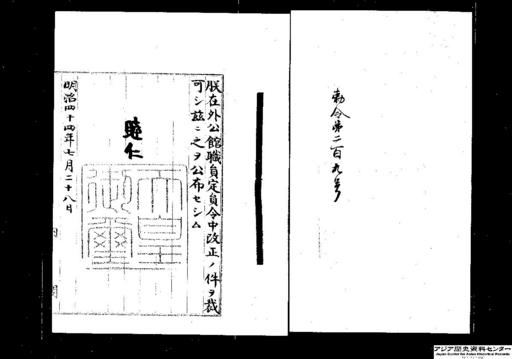 勅令第二百九号
朕在外公館職員定員令中改正ノ件ヲ裁
可シ茲ニ之ヲ公布セシム
睦仁
天皇御璽
明治四十四年七月二十八日
内
閣
アジア歴史資料センター
Japan Center for Asian Historical Records